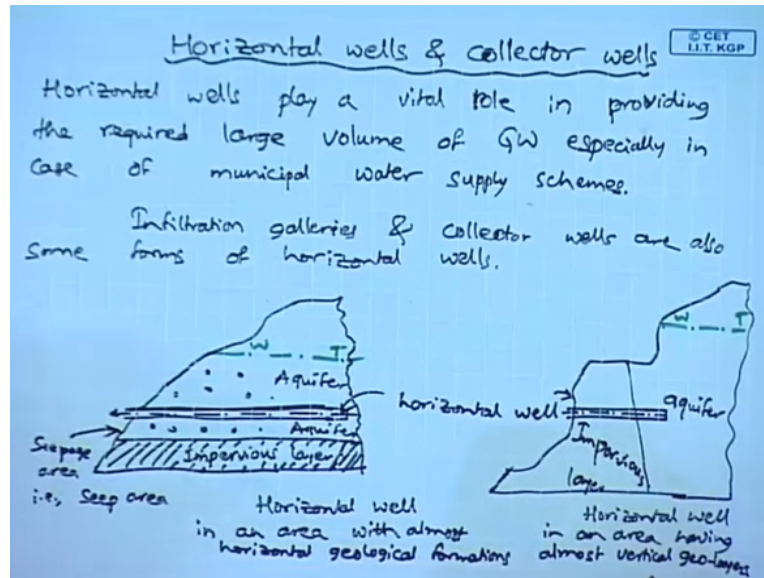 Horizontal wells & collector wells
© CET
I.I.T. KGP
Horizontal wells play a vital role in providing
the required large volume of GW especially in
case of municipal water supply schemes.
Infiltration galleries & collector wells are also
some forms of horizontal wells.
W T
Aquifer
Aquifer
Impervious layer
Seepage
area
i.e., Seep area
Horizontal well
in an area with almost
horizontal geological formations
horizontal well
W T
aquifer
Impervious
layer
Horizontal well
in an area having
almost vertical geo-layers